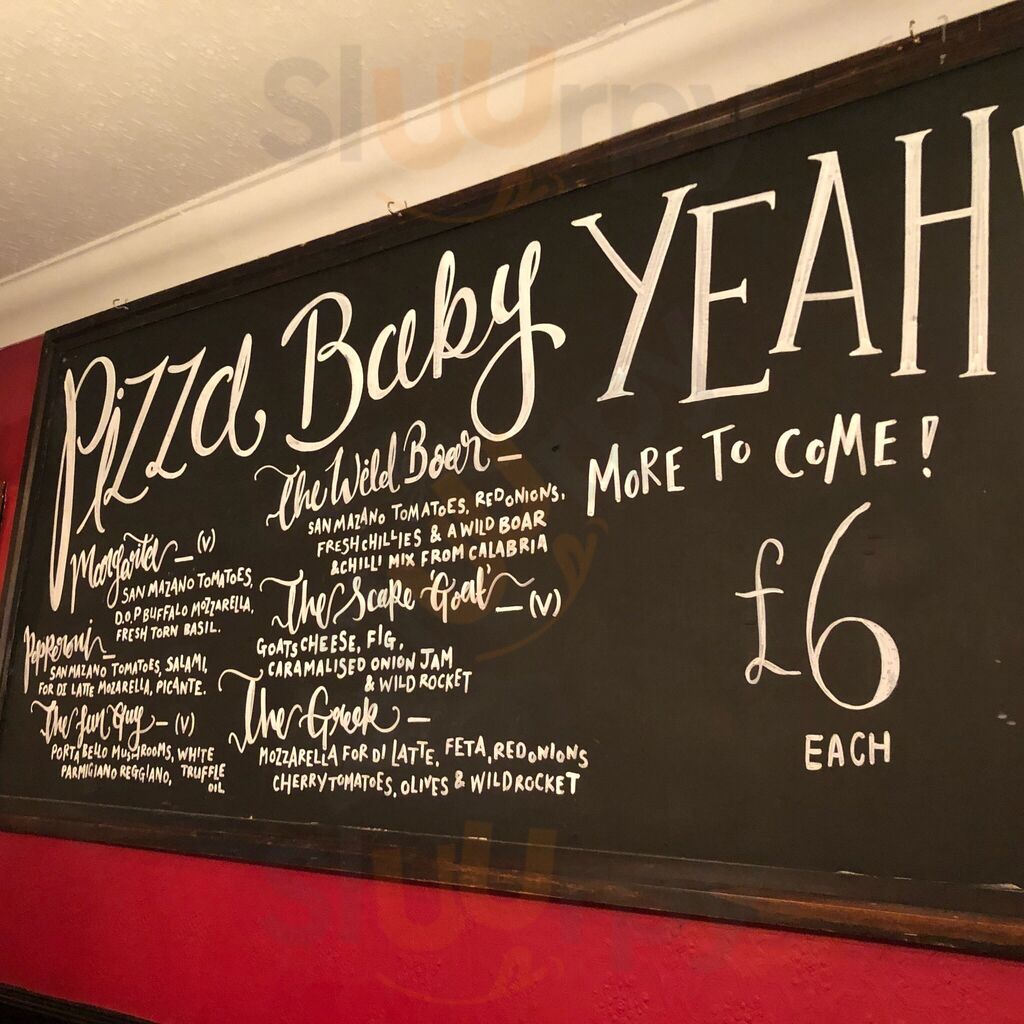 Pizza Baby YEAH
Margarita – (V)
SAN MAZANO TOMATOES,
D.O.P BUFFALO MOZZARELLA,
FRESH TORN BASIL.
Pepperoni –
SAN MAZANO TOMATOES, SALAMI,
FOR DI LATTE MOZARELLA, PICANTE.
The Fun Guy – (V)
PORTABELLO MUSHROOMS, WHITE
PARMIGIANO REGGIANO, TRUFFLE
OIL.
The Wild Boar –
SAN MAZANO TOMATOES, RED ONIONS,
FRESH CHILLIES & A WILD BOAR
& CHILLI MIX FROM CALABRIA
The Scape 'Goat' – (V)
GOATS CHEESE, FIG,
CARAMALISED ONION JAM
& WILD ROCKET
The Greek –
MOZZARELLA FOR DI LATTE, FETA, RED ONIONS
CHERRY TOMATOES, OLIVES & WILD ROCKET
MORE TO COME!
£6
EACH
Sluurpy
Sluurpy
Sluurpy